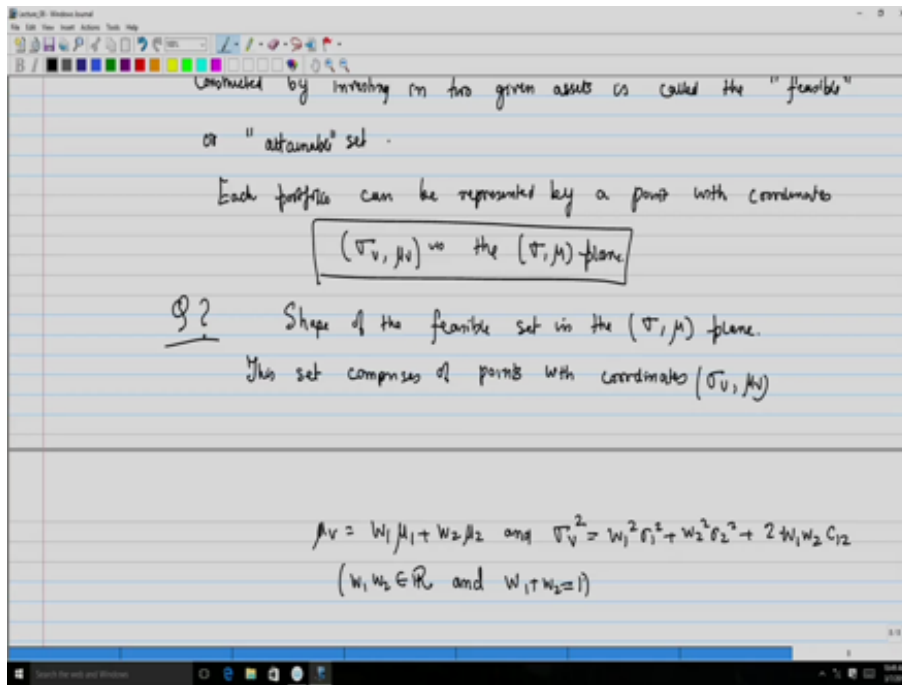 lecture_05 - Windows Journal
File Edit View Insert Actions Tools Help
B I
Constructed by investing in two given assets is called the "feasible"
or "attainable" set.
Each portfolio can be represented by a point with coordinates
(σv, μv) in the (σ, μ) plane.
Q? Shape of the feasible set in the (σ, μ) plane.
This set comprises of points with coordinates (σv, μv)
μv = w₁μ₁ + w₂μ₂ and σv² = w₁²σ₁² + w₂²σ₂² + 2w₁w₂ C₁₂
(w₁ w₂ ∈ ℝ and w₁+w₂=1)
Search the web and Windows